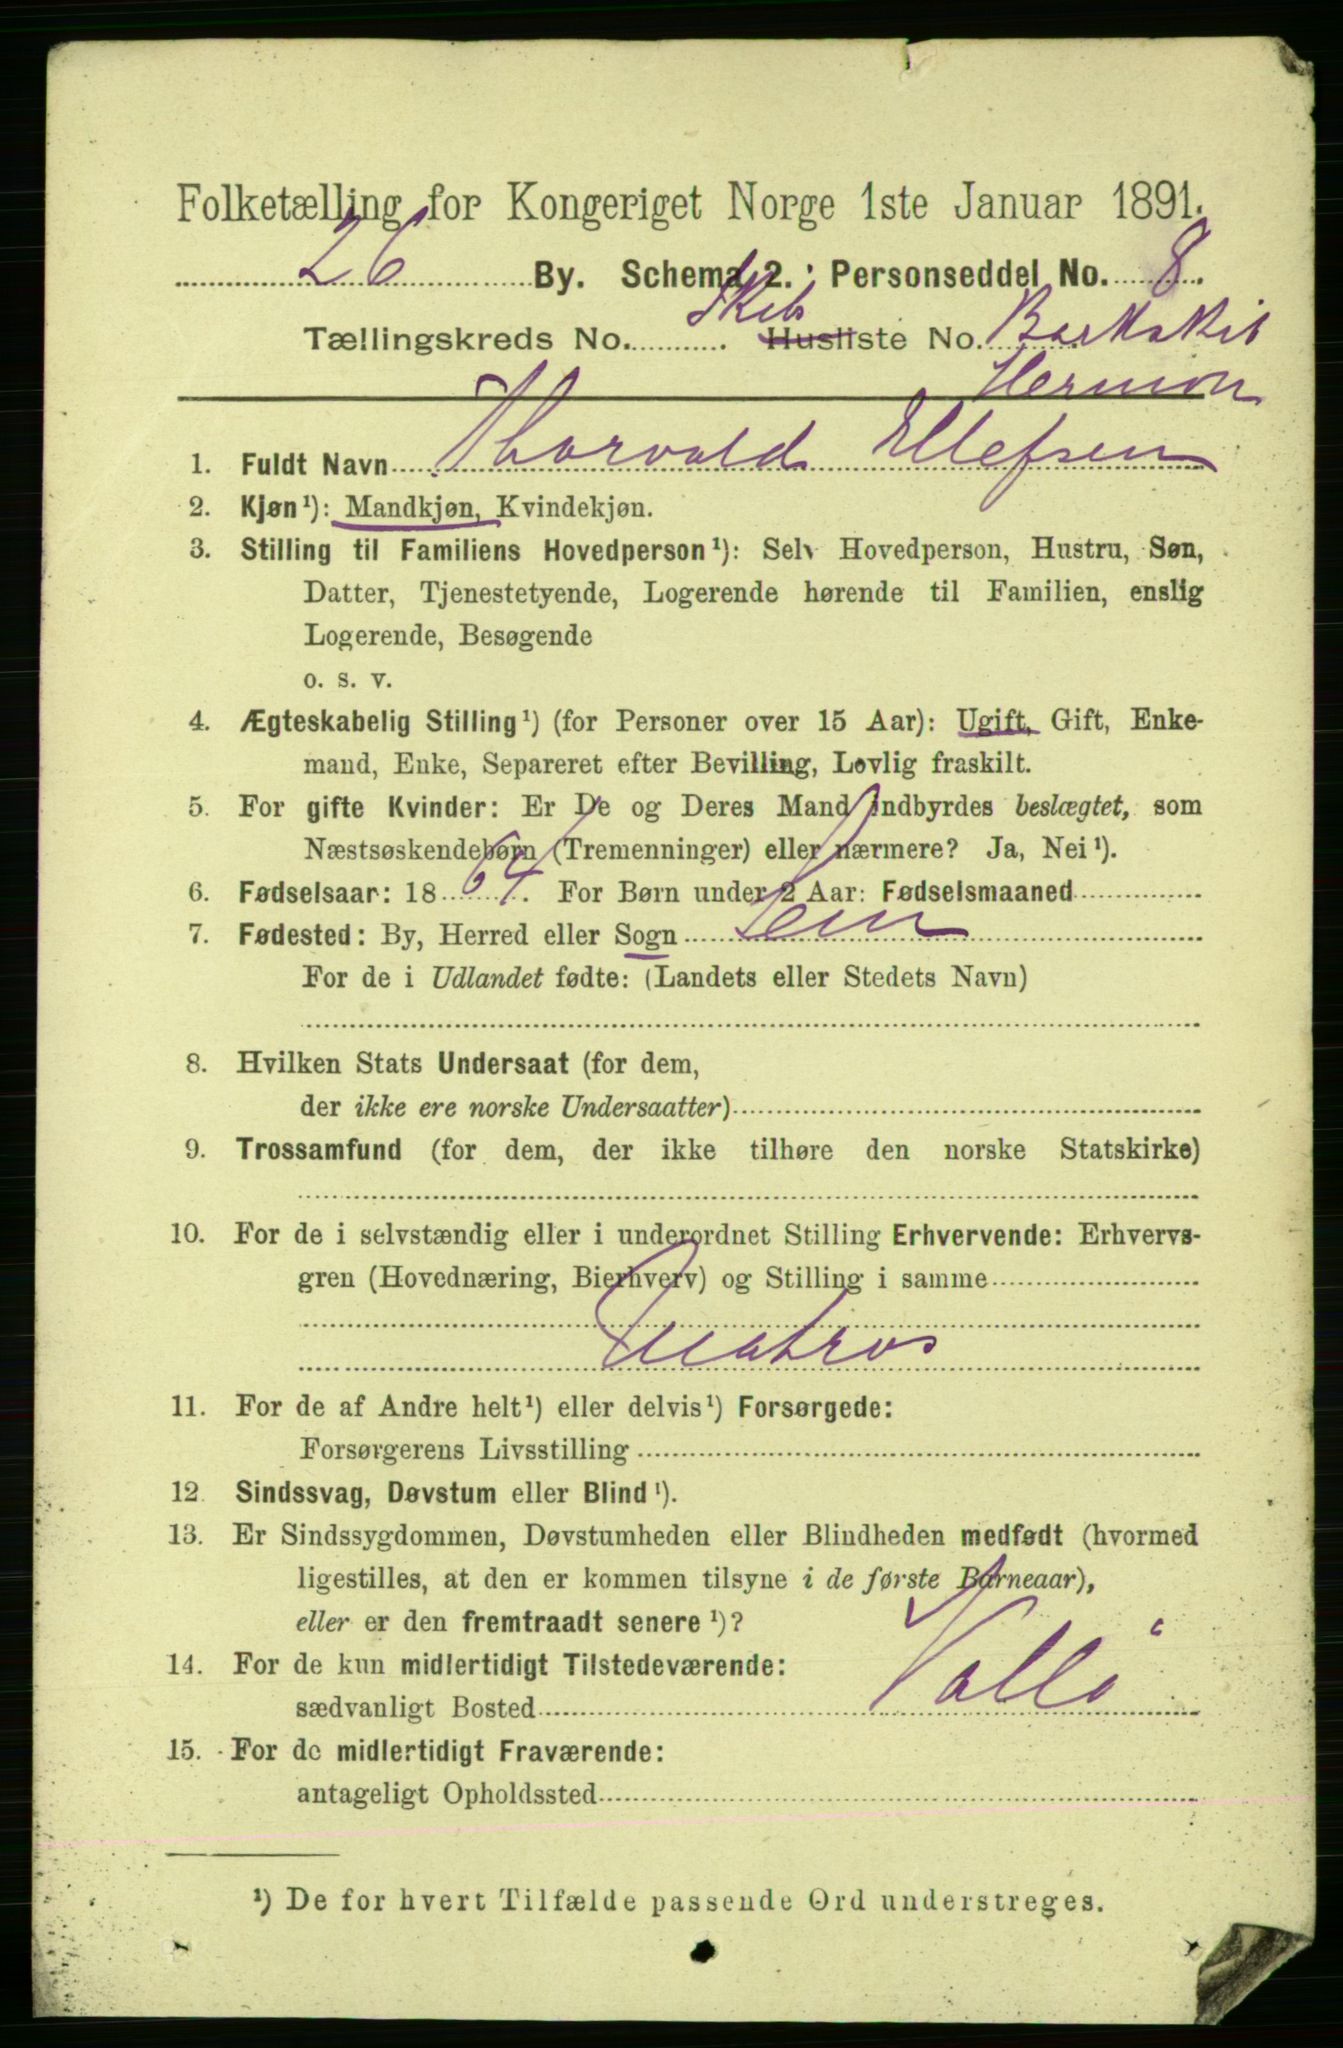 Folketælling for Kongeriget Norge 1ste Januar 1891.
26 By. Schema 2. Personseddel No. 8.
Tællingskreds No. Skibs Husliste No. Barkskib
Hermon
1. Fuldt Navn Thorvald Ellefsen
2. Kjøn¹): Mandkjøn, Kvindekjøn.
3. Stilling til Familiens Hovedperson¹): Selv Hovedperson, Hustru, Søn,
Datter, Tjenestetyende, Logerende hørende til Familien, enslig
Logerende, Besøgende
o. s. v.
4. Ægteskabelig Stilling¹) (for Personer over 15 Aar): Ugift, Gift, Enke-
mand, Enke, Separeret efter Bevilling, Lovlig fraskilt.
5. For gifte Kvinder: Er De og Deres Mand indbyrdes beslægtet, som
Næstsøskendebørn (Tremenninger) eller nærmere? Ja, Nei¹).
6. Fødselsaar: 1864. For Børn under 2 Aar: Fødselsmaaned
7. Fødested: By, Herred eller Sogn Sem
For de i Udlandet fødte: (Landets eller Stedets Navn)
8. Hvilken Stats Undersaat (for dem,
der ikke ere norske Undersaatter)
9. Trossamfund (for dem, der ikke tilhøre den norske Statskirke)
10. For de i selvstændig eller i underordnet Stilling Erhvervende: Erhvervs-
gren (Hovednæring, Bierhverv) og Stilling i samme
Matros
11. For de af Andre helt¹) eller delvis¹) Forsørgede:
Forsørgerens Livsstilling
12 Sindssvag, Døvstum eller Blind¹).
13. Er Sindssygdommen, Døvstumheden eller Blindheden medfødt (hvormed
ligestilles, at den er kommen tilsyne i de første Barneaar),
eller er den fremtraadt senere¹)?
14. For de kun midlertidigt Tilstedeværende:
sædvanligt Bosted Vallö
15. For de midlertidigt Fraværende:
antageligt Opholdssted
¹) De for hvert Tilfælde passende Ord understreges.